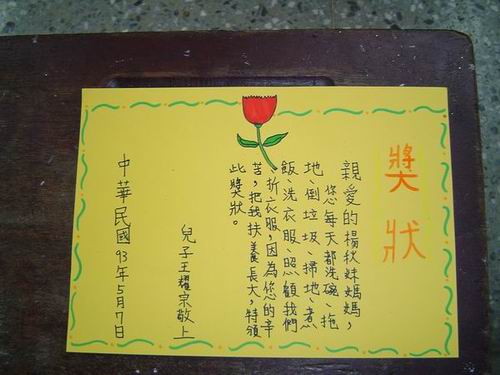 獎狀
親愛的楊秋妹媽媽，
您每天都洗碗、拖
地、倒垃圾、掃地、煮
飯、洗衣服、照顧我們
、折衣服，因為您的辛
苦，把我扶養長大，特頒
此獎狀。
兒子王耀宗敬上
中華民國93年5月7日